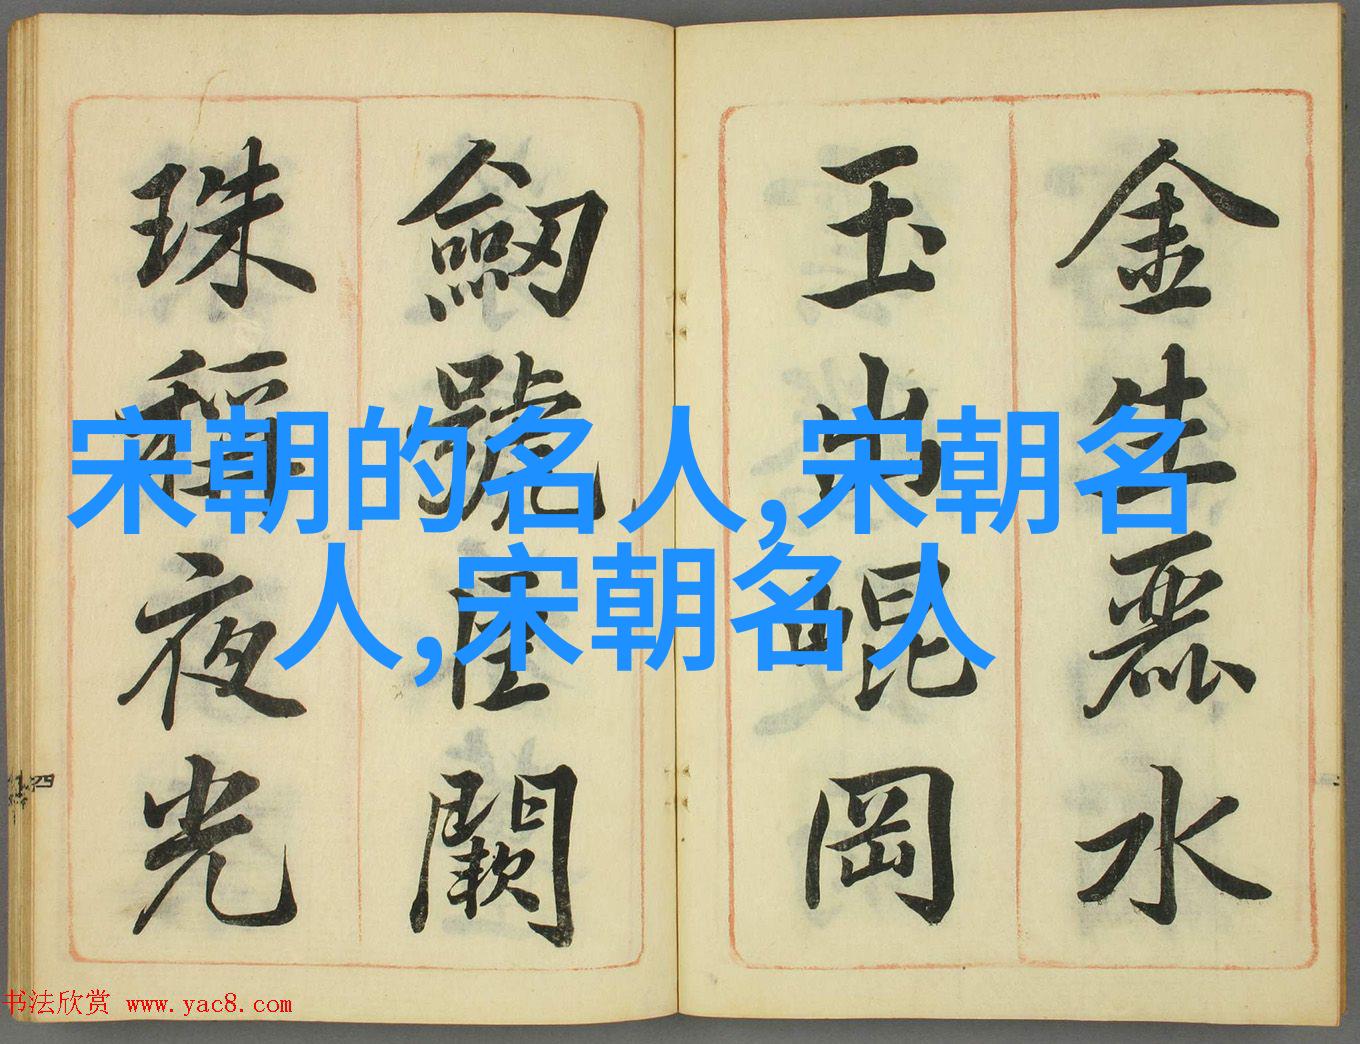 金生麗水
玉出崐岡
劒號巨闕
珠稱夜光
宋朝的名人,宋朝名
人,宋朝名人
四
书法欣赏 www.yac8.com